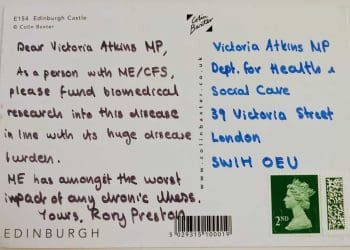 E154 Edinburgh Castle
© Colin Baxter
Colin
Baxter
Dear Victoria Atkins MP,
As a person with ME/CFS,
please fund biomedical
research into this disease
in line with its huge disease
burden.
ME has amongst the worst
impact of any chronic illness.
Yours, Rory Preston
EDINBURGH
www.colinbaxter.co.uk
5 029315 100019
Victoria Atkins MP
Dept. for Health &
Social Care
39 Victoria Street
London
SW1H 0EU
2ND